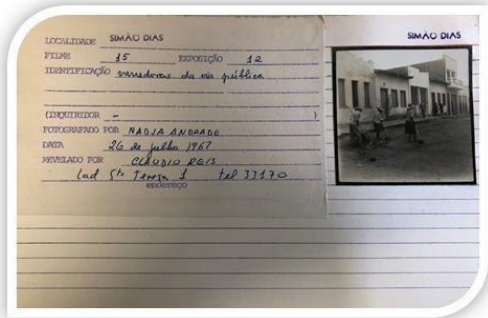 LOCALIDADE SIMÃO DIAS
FILME 15 EXPOSIÇÃO 12
IDENTIFICAÇÃO varredoras da via pública
(INQUIRIDOR - )
FOTOGRAFADO POR NADJA ANDRADE
DATA 26 de julho 1967
REVELADO POR CLAUDIO REIS
Lad Sta Tereza 1 tel 33170
endereço
SIMÃO DIAS